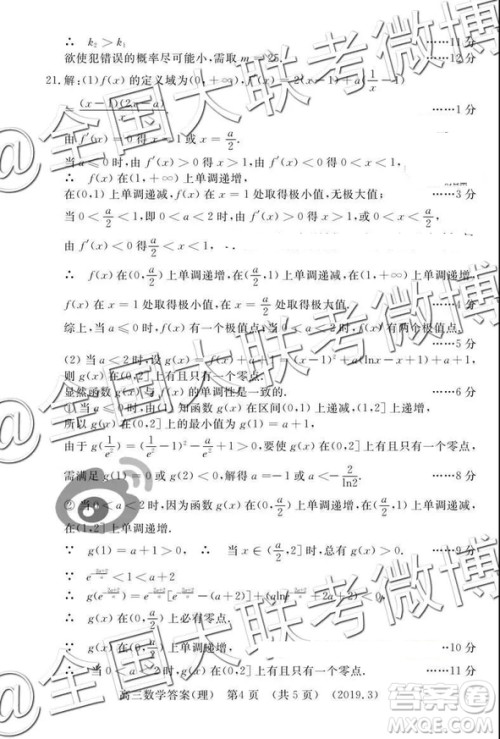 ∴ k₂ > k₁ ……11 分
欲使犯错误的概率尽可能小,需取 m = 25. ……12 分
21.解:(1) f(x) 的定义域为(0,+∞), f′(x) = 2(x−1) + a(1/x − 1)
= (x−1)(2x−a)/x ……1 分
由 f′(x) = 0 得 x = 1,或 x = a/2.
当 a ⩽ 0 时,由 f′(x) > 0 得 x > 1,由 f′(x) < 0 得 0 < x < 1,
∴ f(x) 在(1,+∞) 上单调递增,
在(0,1) 上单调递减, f(x) 在 x = 1 处取得极小值,无极大值; ……3 分
当 0 < a/2 < 1,即 0 < a < 2 时,由 f′(x) > 0 得
由 f′(x) < 0 得 a/2 < x < 1,
∴ f(x) 在(0, a/2) 上单调递增,在(a/2,1) 上单调递减,在(1,+∞) 上单调递增,
f(x) 在 x = 1 处取得极小值,在 x = a/2 处取得极大值. 4 分
综上,当 a ⩽ 0 时, f(x) 有一个极值点; 时, f(x) 有两个极值点.
……5 分
(2) 当 a < 2 时,设 g(x) = (x−1)² + a(lnx−x+1) + a + 1,
则 g(x) 在(0,2] 上有且只有一个零点.
显然函数 g(x) 与 f(x) 的单调性是一致的. ……6 分
① 当 a ⩽ 0 时,由(1) 知函数 g(x) 在区间(0,1) 上递减,(1,2] 上递增,
所以 g(x) 在(0,2] 上的最小值为 g(1) = a + 1,
由于 g(1/e²) = (1/e² − 1)² − a/e² + 1 > 0,要使 g(x) 在(0,2] 上有且只有一个零点,
需满足 g(1) = 0 或 g(2) < 0,解得 a = −1 或 a < − 2/ln2. ……8 分
② 当 0 < a < 2 时,因为函数 g(x) 在(0, a/2) 上单调递增,在(a/2,1) 上单调递减,
在(1,2] 上单调递增.
∵ g(1) = a + 1 > 0, ∴ 当 x ∈ (a/2,2] 时,总有 g(x) > 0. ……9 分
< 1 < a + 2
∴ 在(0, a/2) 上必有零点. ··10 分
∵ g(x) 在(0, a/2) 上单调递增, ……11 分
高三数学答案(理) 第4页 (共5页) (2019.3)
@全国大联考微博
@全国大联考微博
答案圈